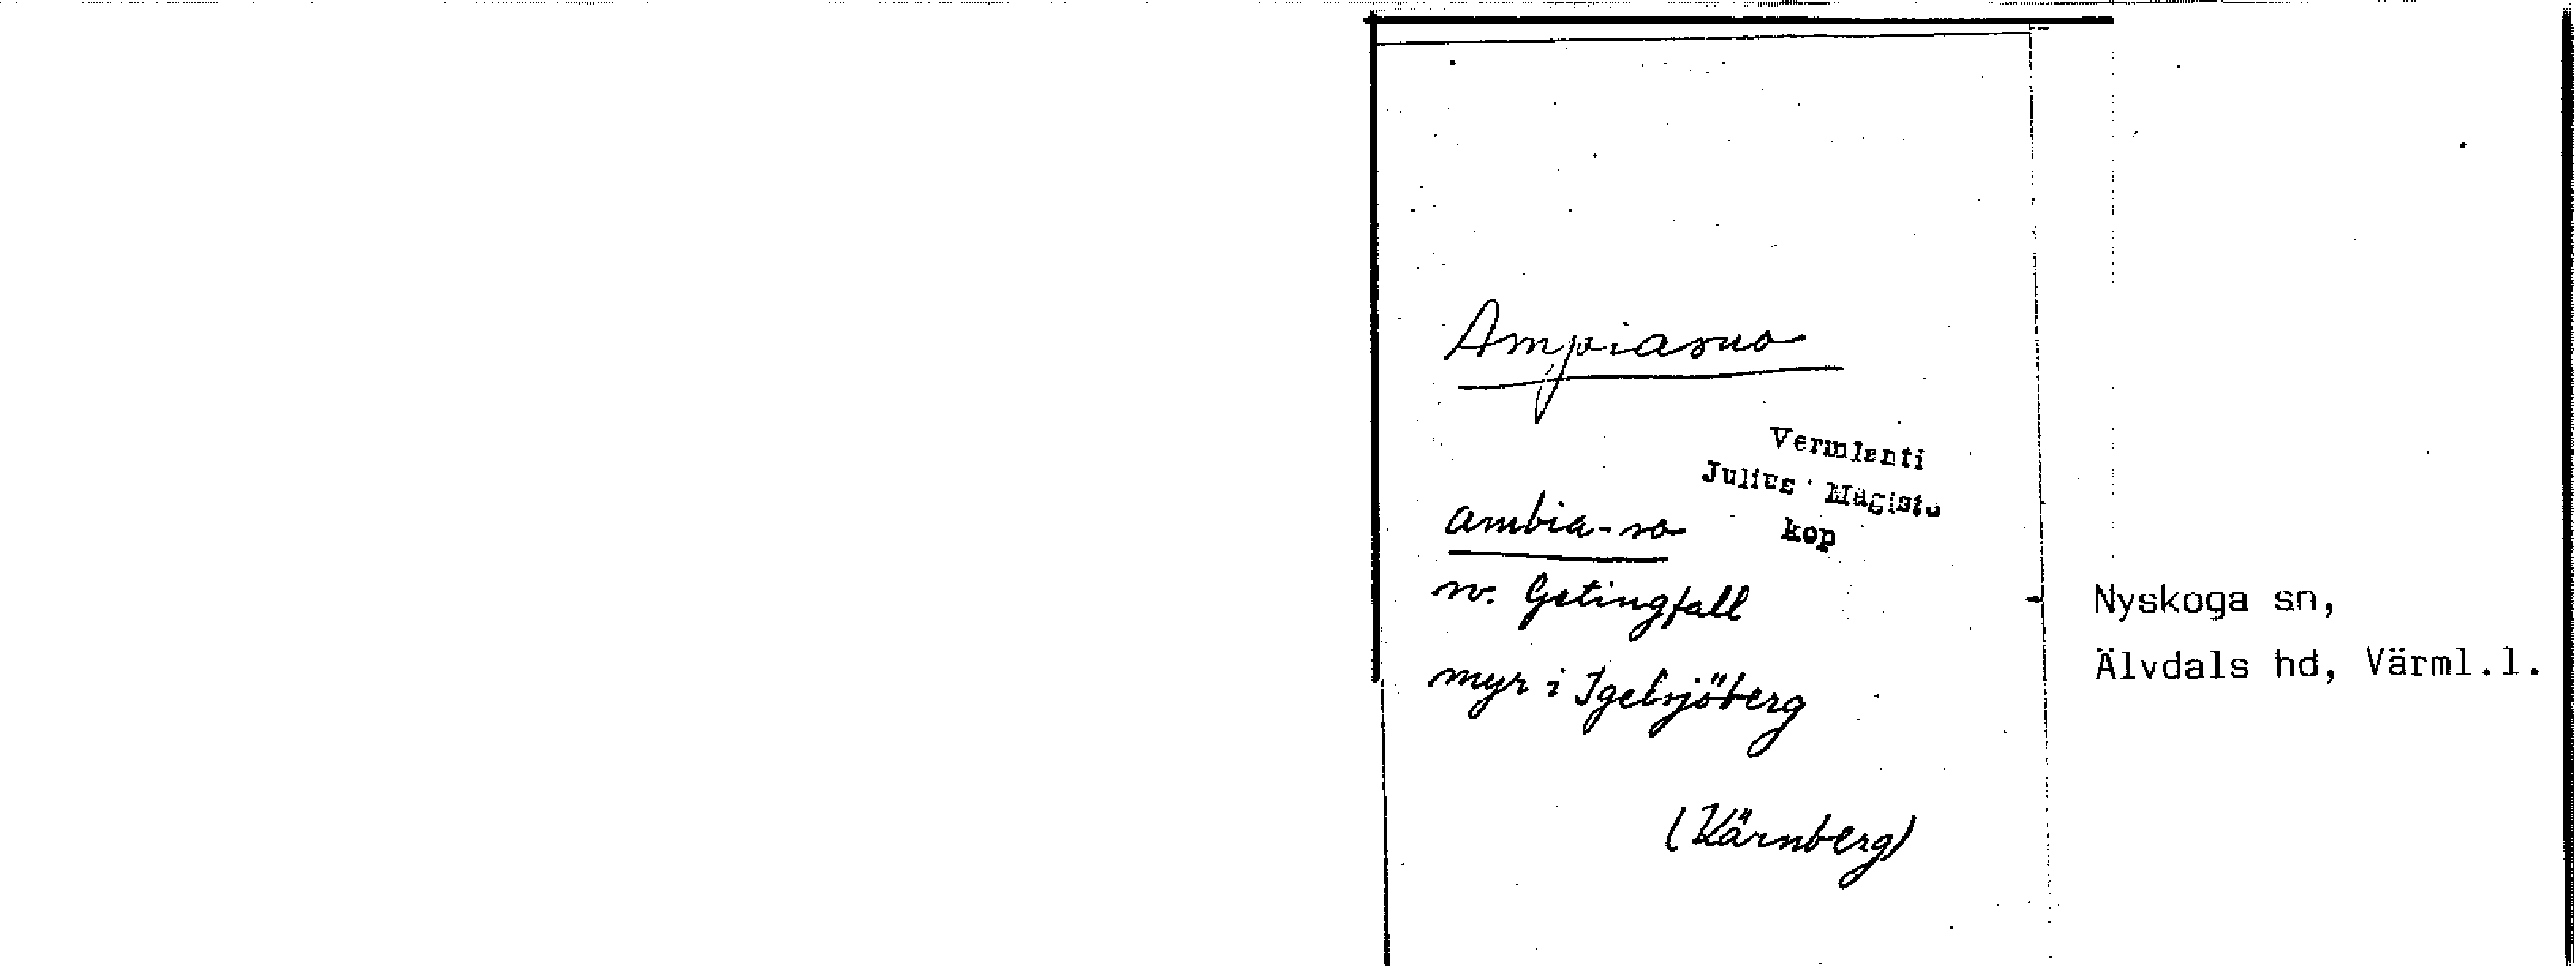 Ampiasuo
Vermlanti
Julius Mägiste
kop
ambia-so
sv. Getingfall
myr i Igelsjöberg
(Kärnberg)
Nyskoga sn,
Älvdals hd, Värml.l.